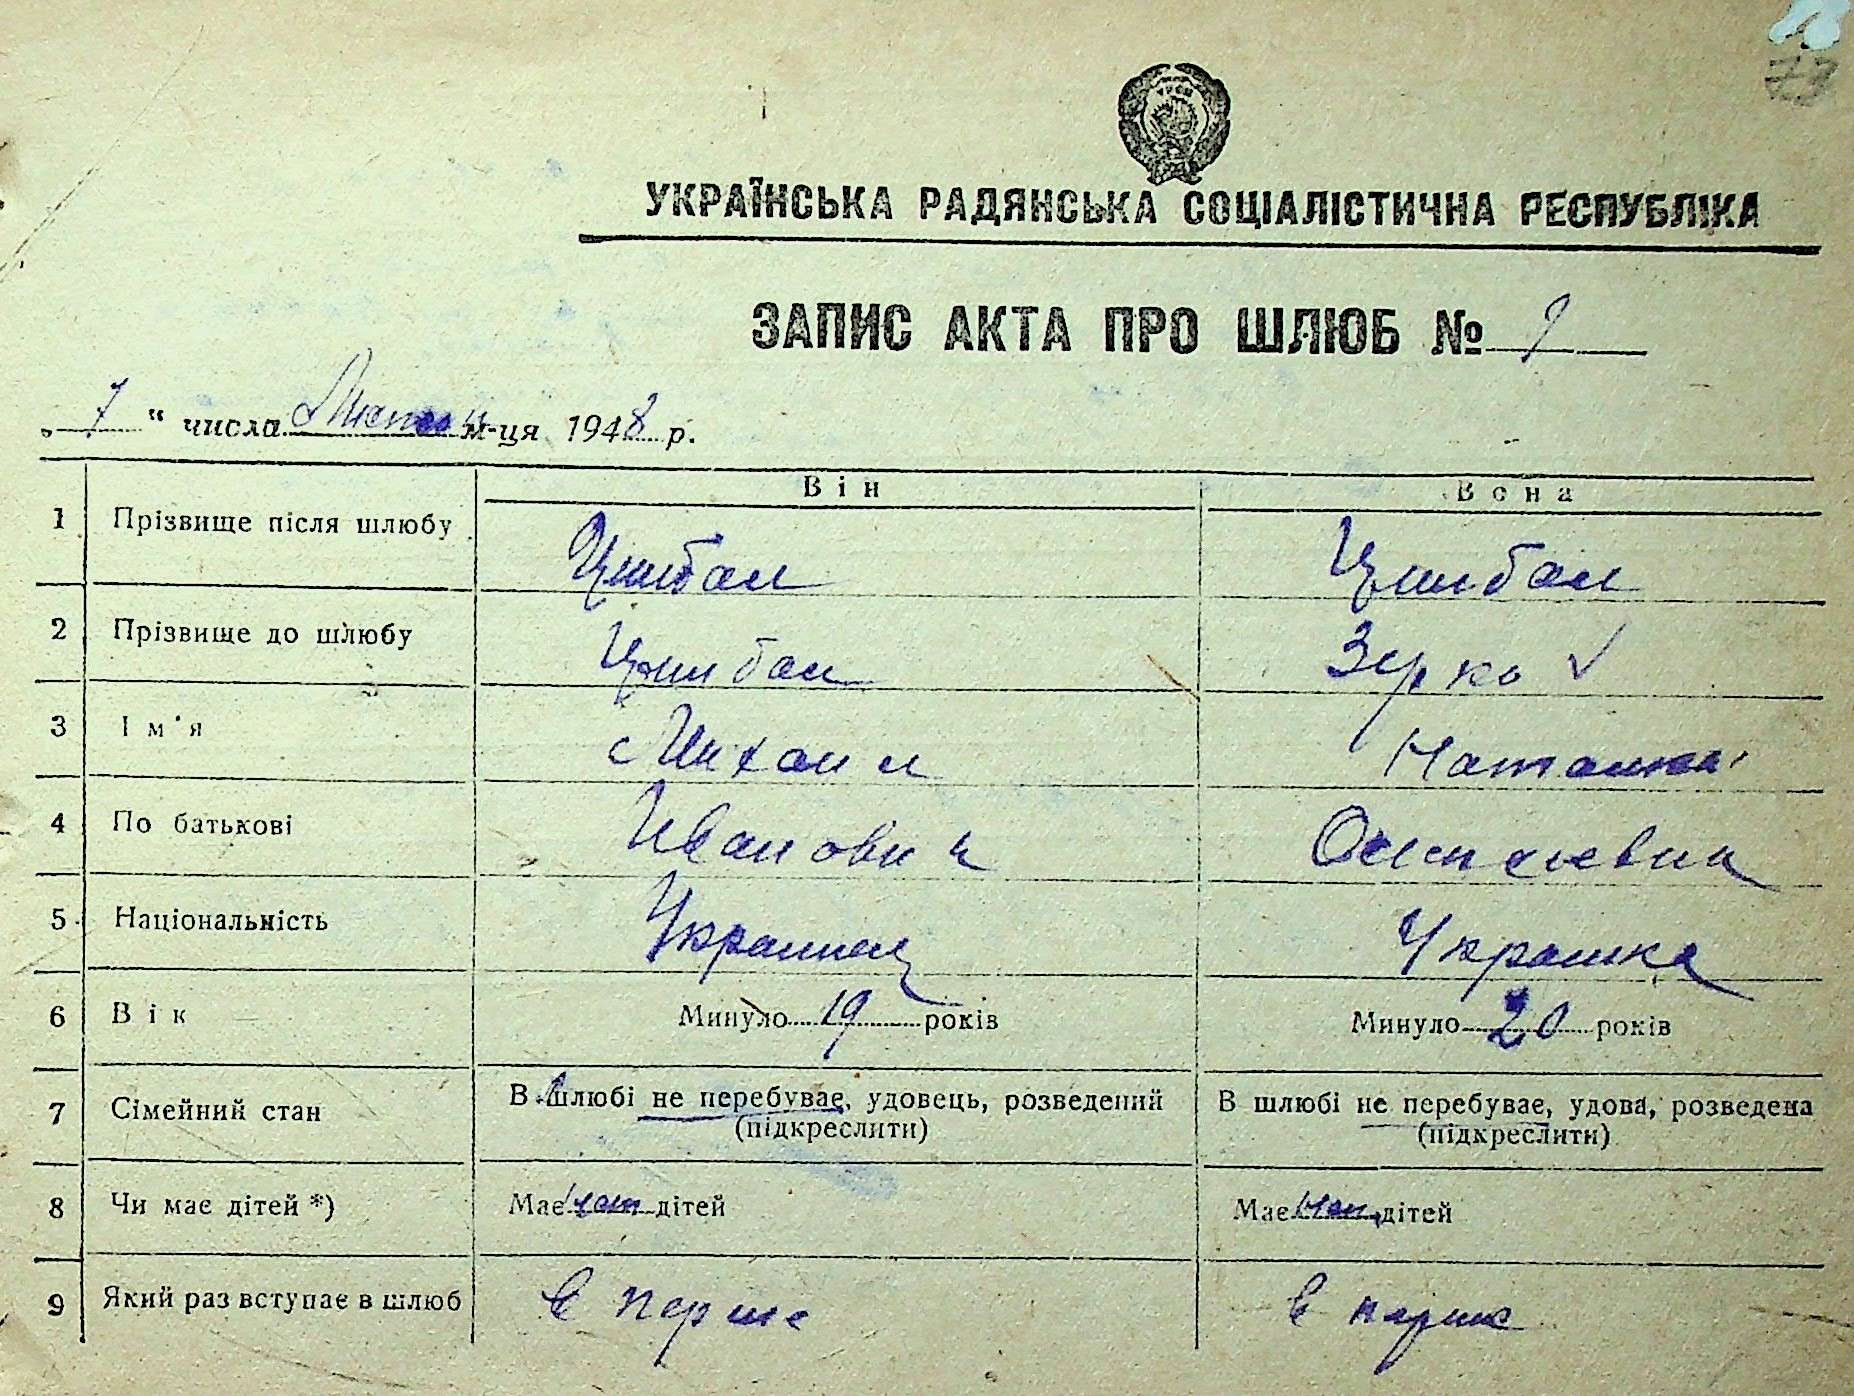 УРСР
УКРАЇНСЬКА РАДЯНСЬКА СОЦІАЛІСТИЧНА РЕСПУБЛІКА
ЗАПИС АКТА ПРО ШЛЮБ № 9
„ 7 “ числа м-ця 1948 р.
Він Вона
1 Прізвище після шлюбу Цимбал Цимбал
2 Прізвище до шлюбу Цимбал Зерко
3 Ім'я Михаил Наталия
4 По батькові Иванович
5 Національність Украинец Украинка
6 Вік Минуло 19 років Минуло 20 років
7 Сімейний стан В шлюбі не перебуває, удовець, розведений В шлюбі не перебуває, удова, розведена
(підкреслити) (підкреслити)
8 Чи має дітей *) Має нет дітей Має нет дітей
9 Який раз вступає в шлюб в перше в перше